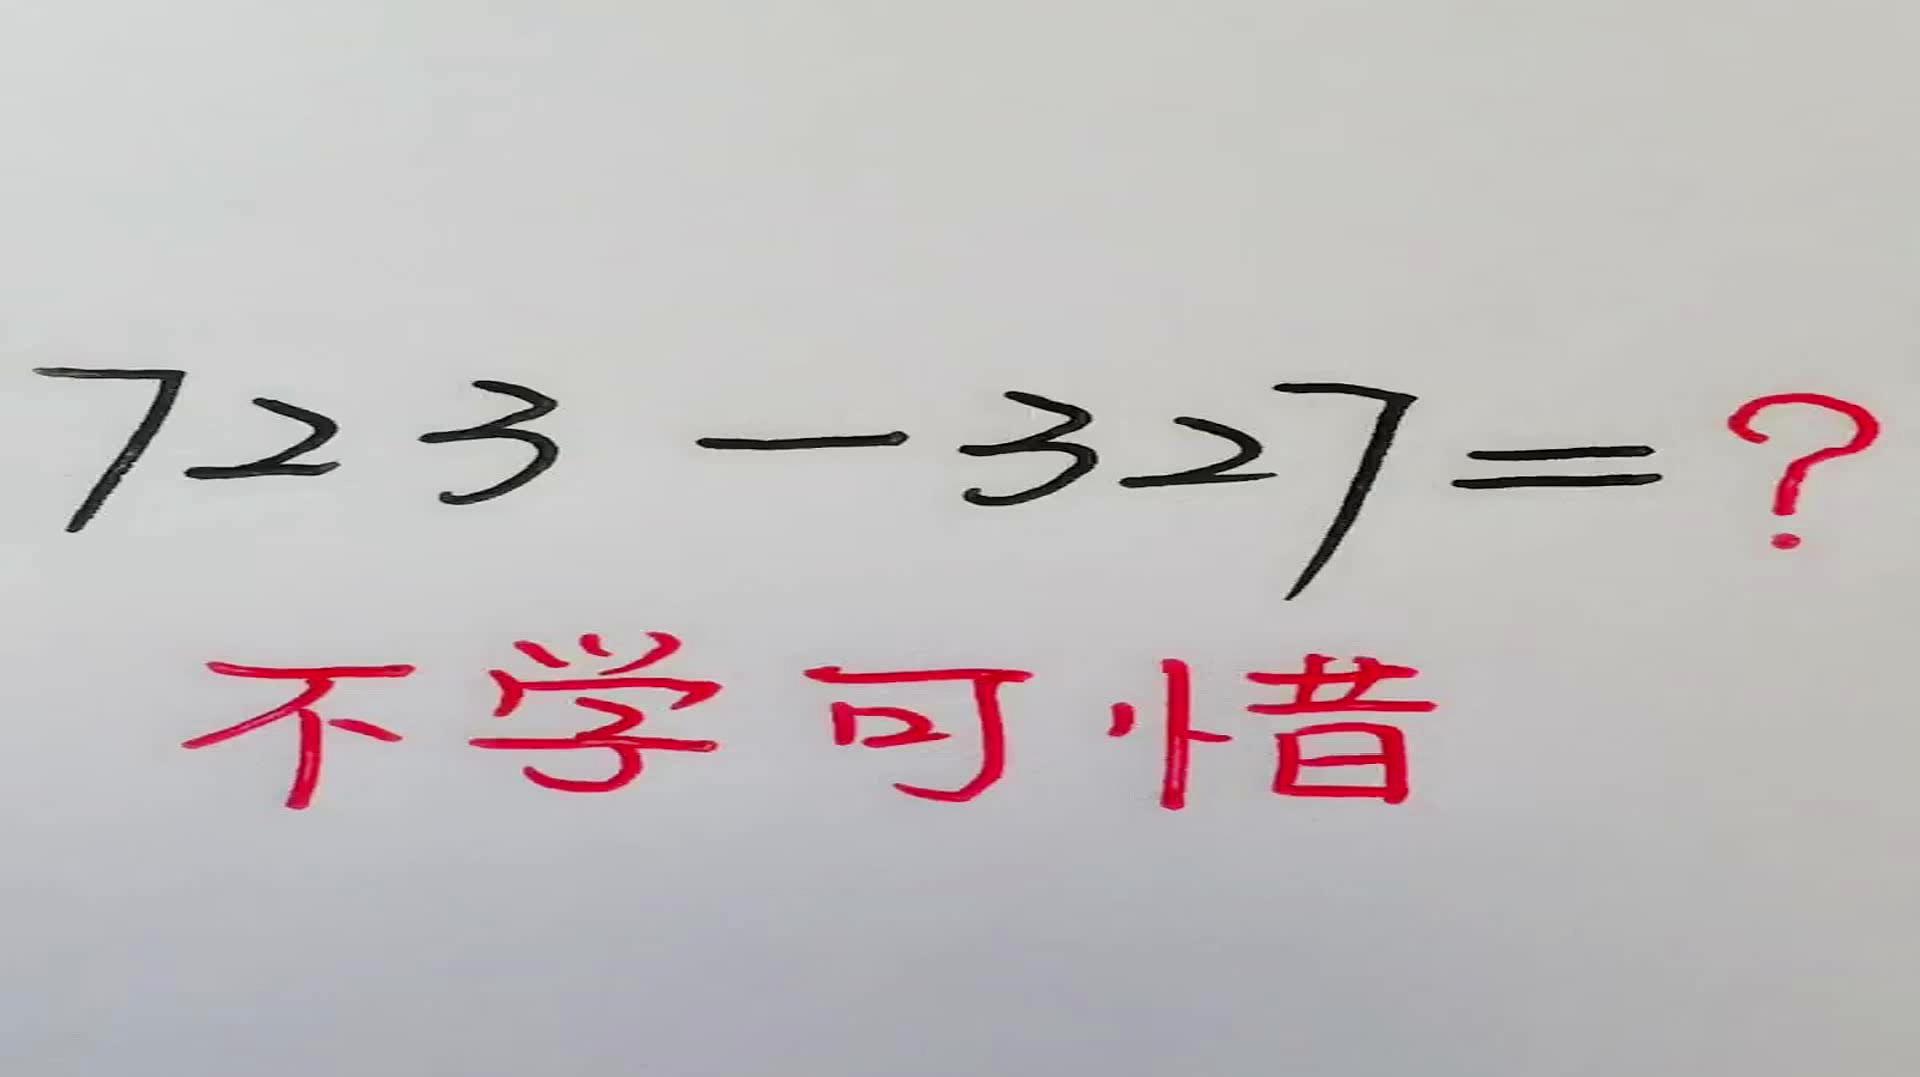 723-327=?
不学可惜